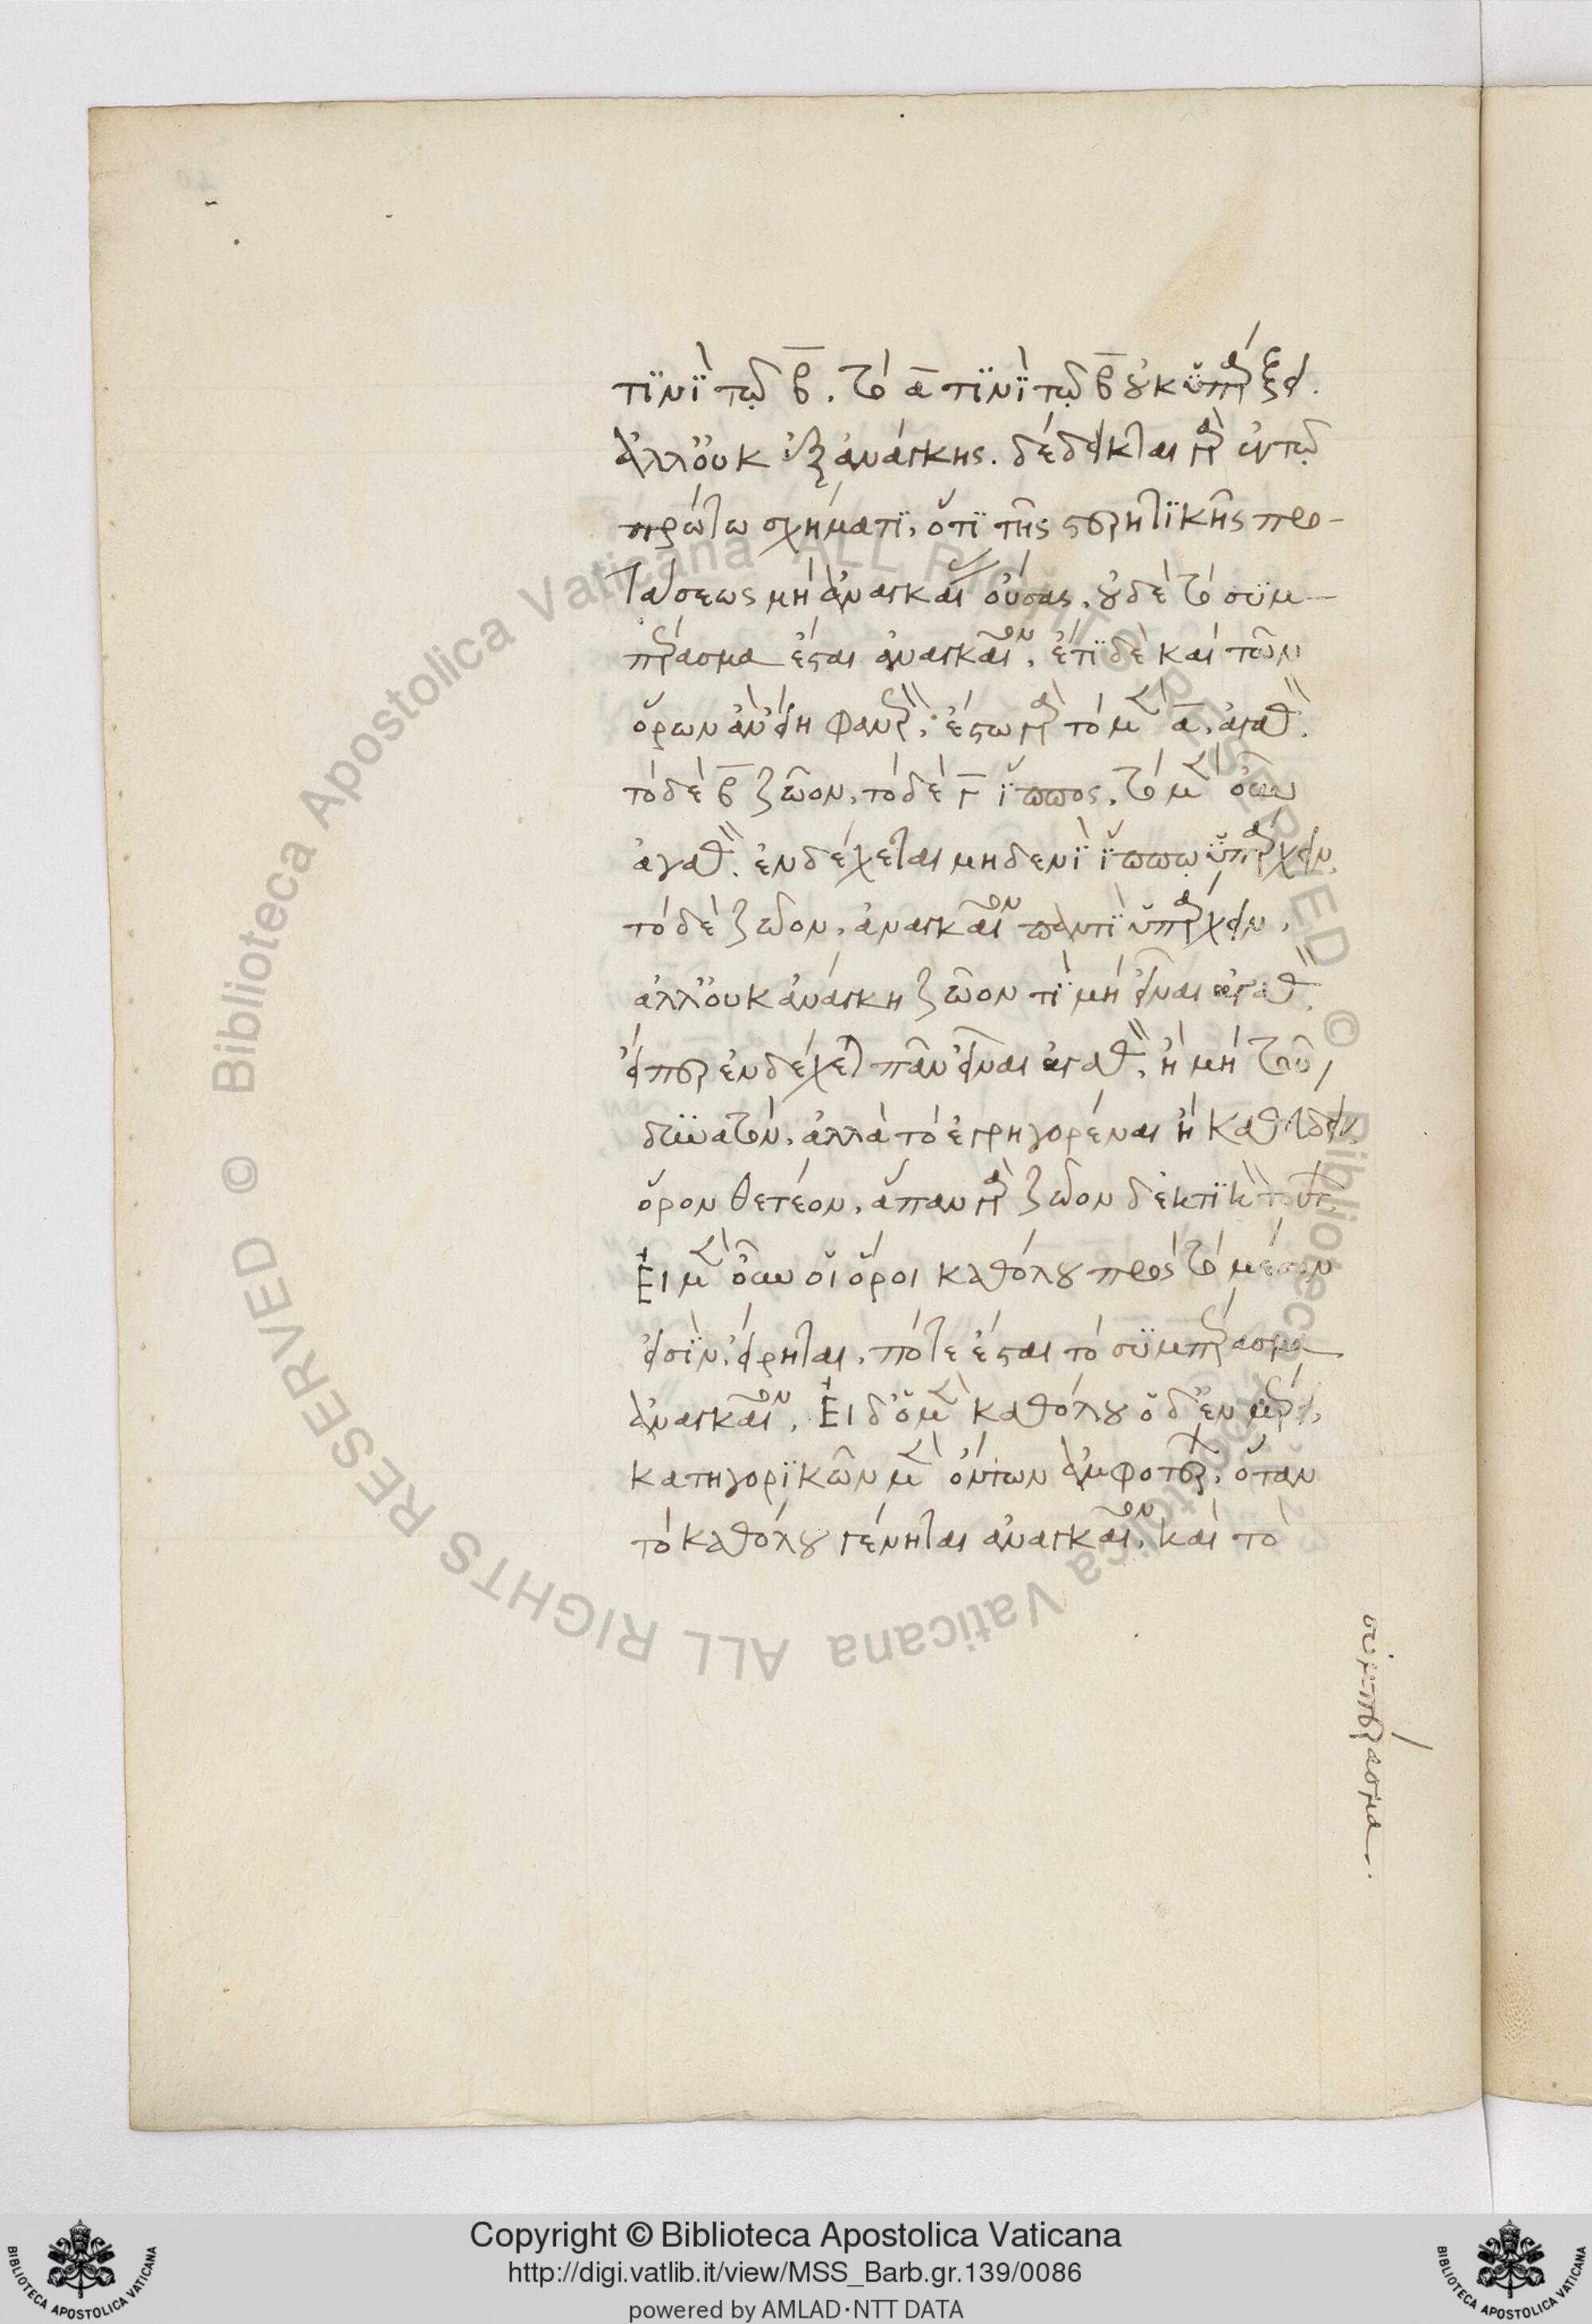 τϊνὶ τῷ β̅. τὸ α̅ τϊνὶ τῷ β̅ οὐκ ὑπάρξει.
ἀλλ' οὐκ ἐξ ἀνάγκης. δέδεικται γὰρ ἐν τῷ
πρώτω σχήματϊ, ὅτϊ τῆς στερητϊκῆς προ-
τάσεως μὴ ἀναγκαίας οὔσης, οὐδὲ τὸ συμ-
πέρασμα ἔσται ἀναγκαῖον. ἔτϊ δὲ καὶ τῶν
ὅρων ἂν εἴη φανερόν. ἔστω γὰρ τὸ μὲν α̅. ἀγαθόν.
τὸ δὲ β̅ ζῶον. τὸ δὲ γ̅ ἵππος. τὸ μὲν οὖν
ἀγαθὸν. ἐνδέχεται μηδενὶ ἵππῳ ὑπάρχειν.
τὸ δὲ ζῶον. ἀναγκαῖον παντὶ ὑπάρχειν.
ἀλλ' οὐκ ἀνάγκη ζῶον τϊ μὴ εἶναι ἀγαθόν.
εἴπερ ἐνδέχεται πᾶν εἶναι ἀγαθόν. ἢ μὴ τοῦτο
δυνατὸν. ἀλλὰ τὸ ἐγρηγορέναι ἢ καθεύδειν.
ὅρον θετέον. ἅπαν γὰρ ζῶον δεκτϊκὸν τούτων.
Εἰ μὲν οὖν οἱ ὅροι καθόλου πρὸς τὸ μέσον
εἰσϊν. εἴρηται. πότε ἔσται τὸ συμπέρασμα
ἀναγκαῖον. Εἰ δ' ὁ μὲν καθόλου ὁ δ' ἐν μέρει.
κατηγορϊκῶν μὲν ὄντων ἀμφοτέρων. ὅταν
τὸ καθόλου γένηται ἀναγκαῖον. καὶ τὸ
συμπέρασμα.
Copyright © Biblioteca Apostolica Vaticana
http://digi.vatlib.it/view/MSS_Barb.gr.139/0086
powered by AMLAD·NTT DATA